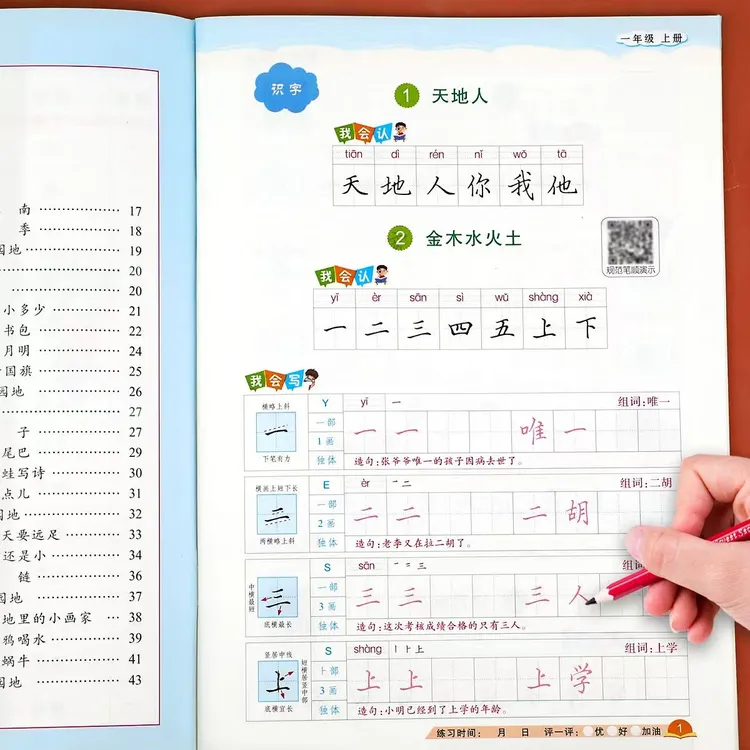 南 17
季 18
园地 19
20
20
小多少 21
书包 22
月明 24
国旗 25
园地 26
27
子 27
尾巴 29
蛙写诗 30
点儿 31
园地 32
天要远足 33
还是小 34
链 36
园地 37
地里的小画家 38
鸦喝水 39
蜗牛 41
园地 43
一年级 上册
识字
1 天地人
我会认
tiān dì rén nǐ wǒ tā
天 地 人 你 我 他
2 金木水火土
规范笔顺演示
我会认
yī èr sān sì wǔ shàng xià
一 二 三 四 五 上 下
我会写
横略上斜 Y yī 一 组词:唯一
一 一部 1画 一 一 唯 一
下笔有力 独体 造句:张爷爷唯一的孩子因病去世了。
横画上短下长 E èr 组词:二胡
二 一部 2画 二 二 二 胡
两横略上斜 独体 造句:老李又在拉二胡了。
S sān 组
中横最短 三 一部 3画 三 三 三 人
底横最长 独体 造句:这次考核成绩合格的只有三人。
竖居中线 S shàng 组词:上学
上 短横居竖中部 卜部 3画 上 上 上 学
底横宜长 独体 造句:小明已经到了上学的年龄。
练习时间: 月 日 评一评: 优 好 加油 1